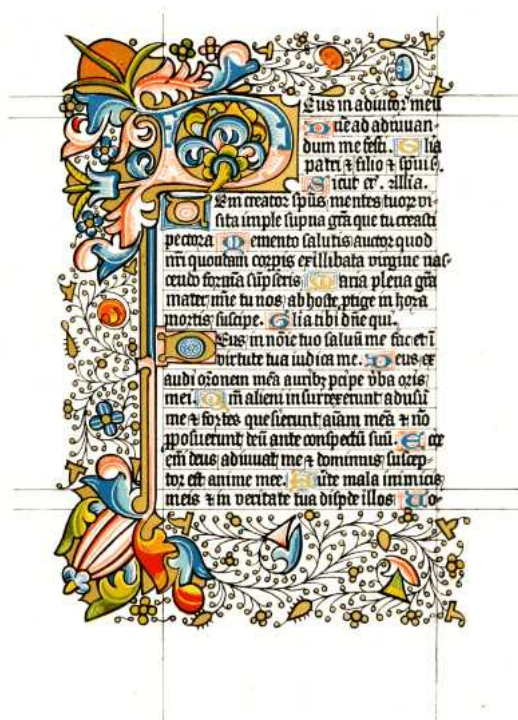 Deus in adiutor meū
Dn̄e ad adiuuan-
dum me festi. Glīa
patri ⁊ filio ⁊ spūi s̄.
Sicut er̄. Allīa.
Uem creator spūs mentes tuoꝝ vi-
sita imple supna grā que tu creasti
pectora Memento salutis auctor quod
nr̄i quondam corpis ex illibata virgine nas-
cendo formā sūpseris Maria plena grā
mater mīe tu nos ab hoste ptige in hora
mortis suscipe. Glīa tibi dn̄e qui.
Deus in nōie tuo saluū me fac et ī
virtute tua iudica me. Deus ex
audi or̄onem meā auribꝫ pcipe v̄ba oris
mei. Qm̄ alieni insurrexerunt adusū
me ⁊ fortes quesierunt aīam meā ⁊ nō
pposuerunt deū ante conspectū suū. Ecce
em̄ deus adiuuat me ⁊ dominus suscep-
tor est anime mee. Auīte mala inimicis
meis ⁊ in veritate tua dispde illos Uo-